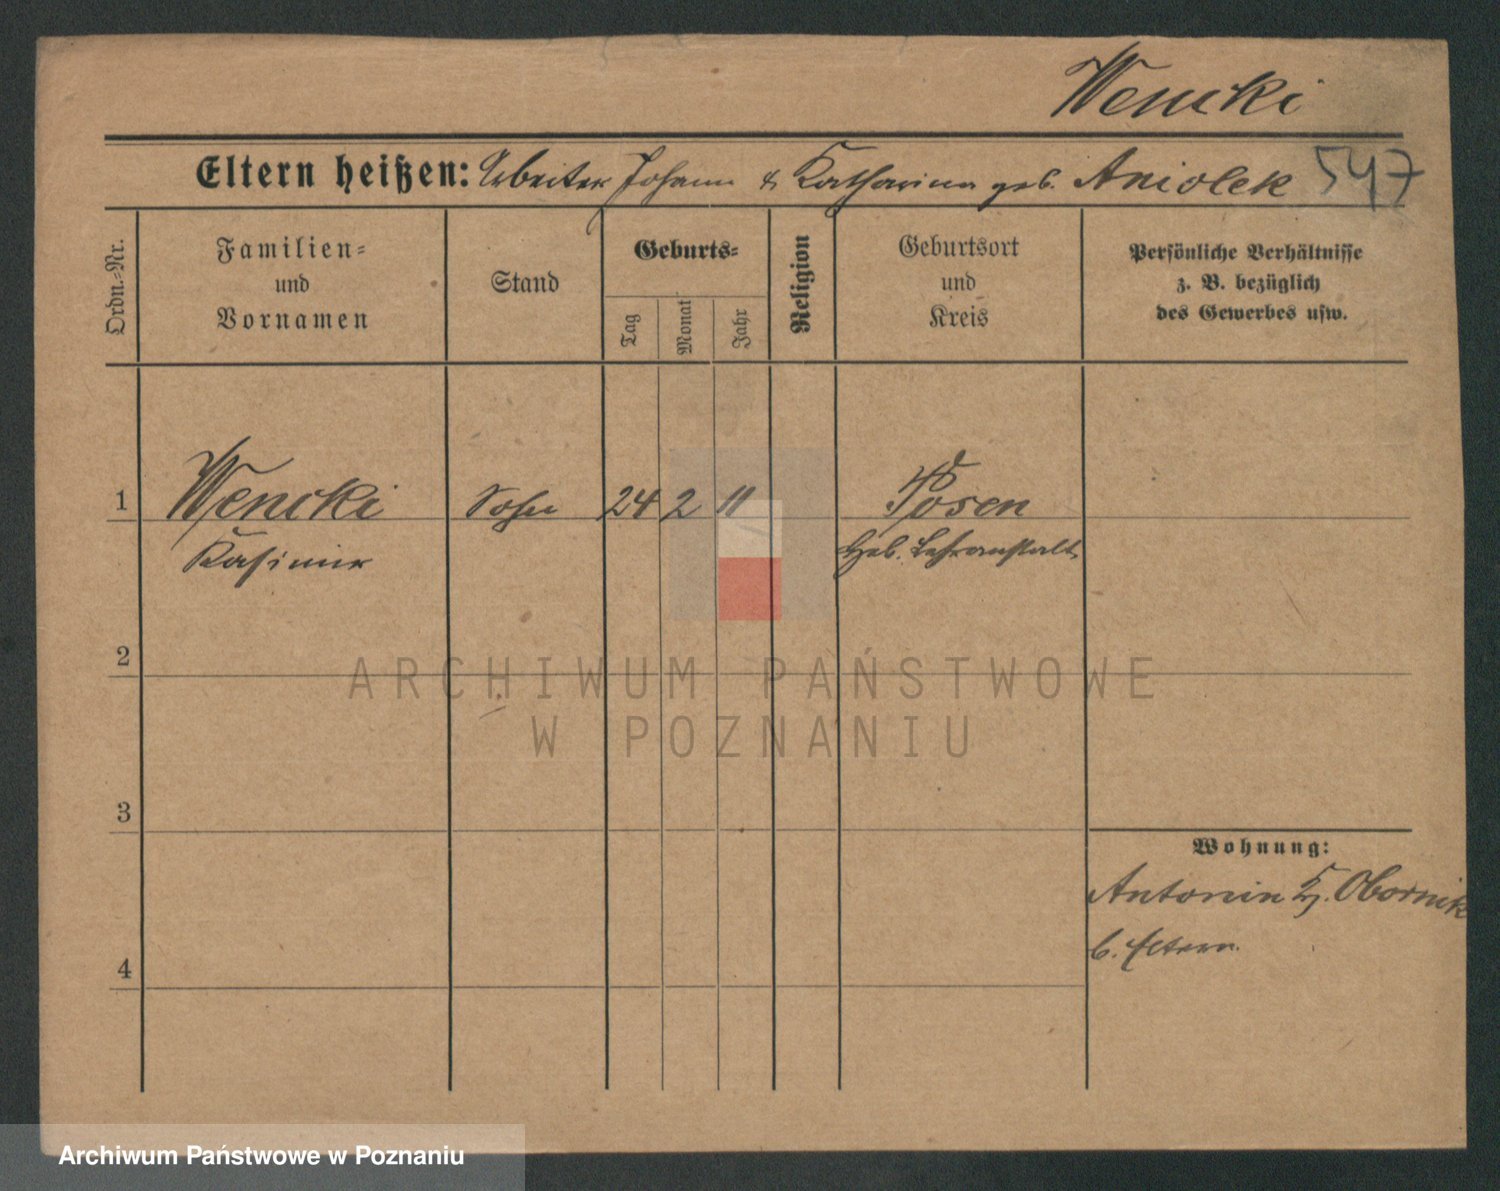 Wencki
Eltern heißen: Arbeiter Johann & Katharina geb. Aniolek 547
Ordn.-Nr.
Familien-
und
Vornamen
Stand
Geburts-
Tag
Monat
Jahr
Religion
Geburtsort
und
Kreis
Persönliche Verhältnisse
z. B. bezüglich
des Gewerbes usw.
1 Wencki Sohn 24 2 11 Posen
Kasimir Heb. Lehranstalt
2
ARCHIWUM PAŃSTWOWE
W POZNANIU
3
Wohnung:
Antonin Kr. Obornik
b. Eltern.
4
Archiwum Państwowe w Poznaniu